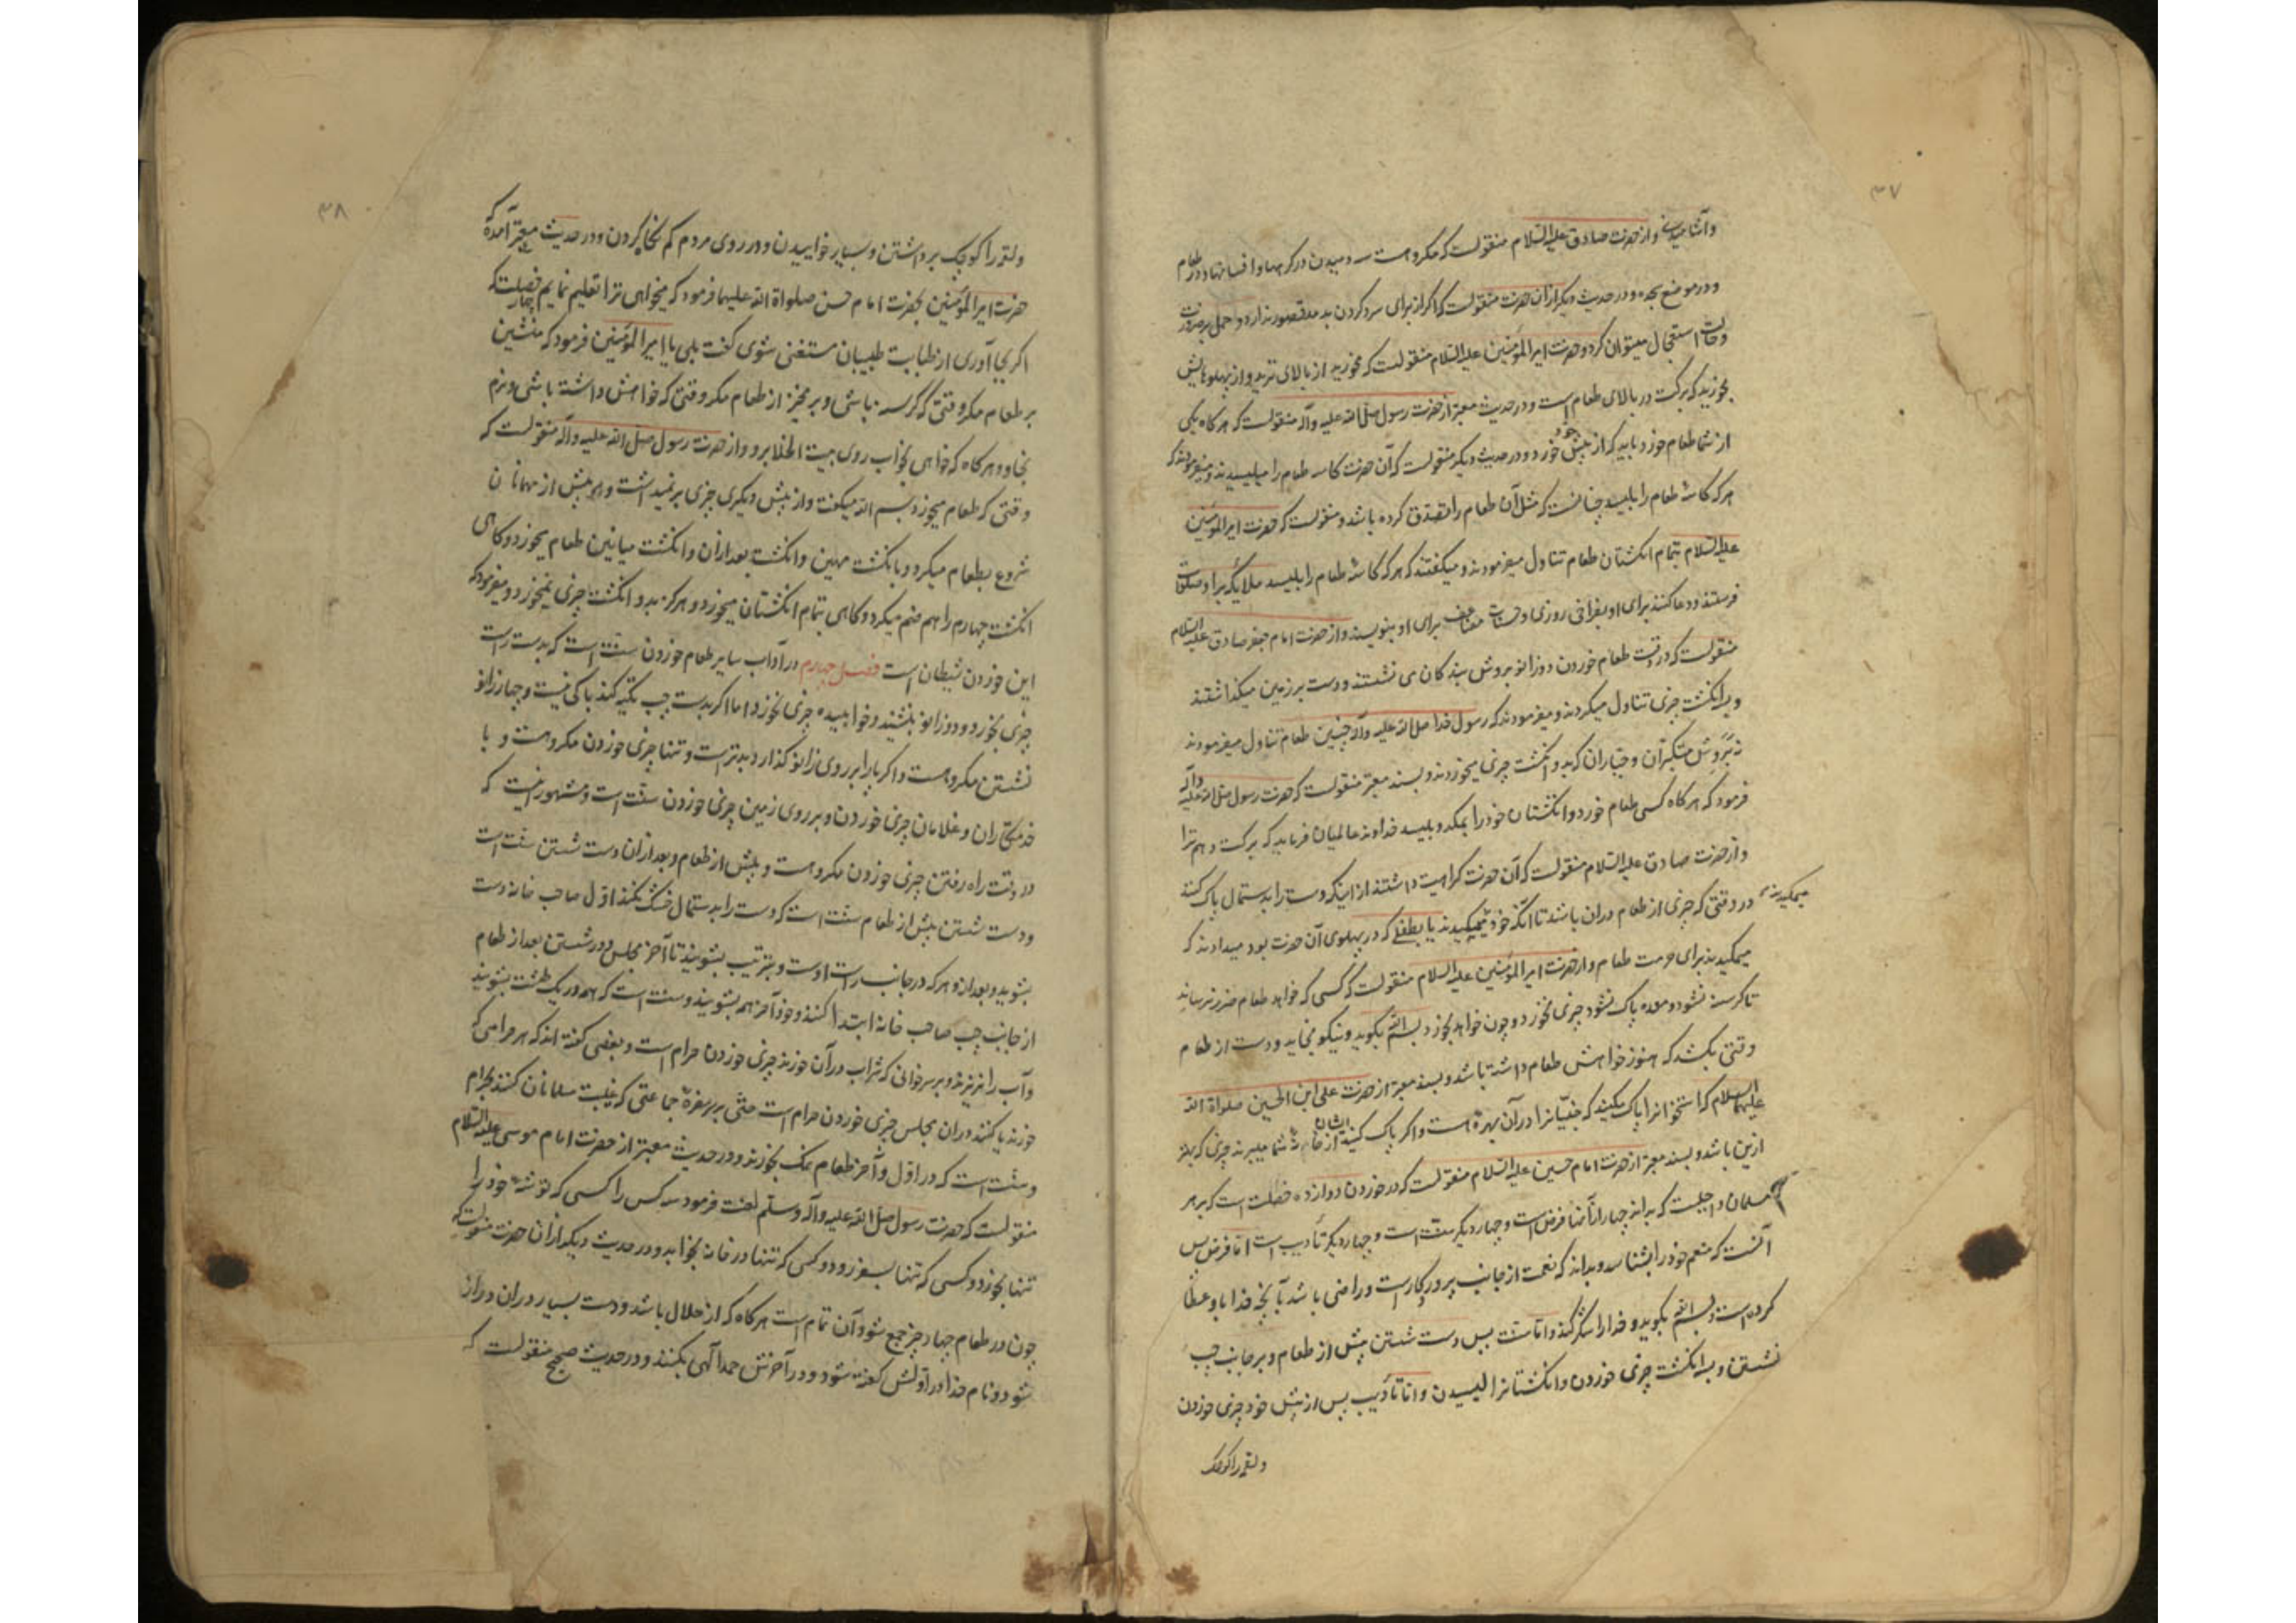 ۳۷
وآشامیدنیها و از حضرت صادق علیه السلام منقولست که مکروهست سه دمیدن در گرهها و افسانها و در طعام
و در موضع سجده و در حدیث دیگر از آن حضرت منقولست که اگر از برای سرد کردن بدمد قصور ندارد و حمل بر ضرورت
و حالت استعجال میتوان کرد و حضرت امیرالمؤمنین علیه السلام منقولست که مخورید از بالای ثرید و از پهلوهایش
بخورید که برکت در بالای طعام است و در حدیث معتبر از حضرت رسول صلی الله علیه وآله منقولست که هر گاه یکی
از شما طعام خورد باید که از پیش خود خورد و در حدیث دیگر منقولست که آن حضرت کاسه طعام را میلیسیدند و میفرمودند که
هر که کاسهٔ طعام را بلیسد چنانست که مثل آن طعام را تصدق کرده باشد و منقولست که حضرت امیرالمؤمنین
علیه السلام بتمام انگشتان طعام تناول میفرمودند و میگفتند که هر که کاسهٔ طعام را بلیسد ملائکه بر او صلوات
فرستند و دعا کنند برای او بفراخی روزی و حسنات مضاعف برای او بنویسند و از حضرت امام جعفر صادق علیه السلام
منقولست که در وقت طعام خوردن دوزانو بروش بندگان می نشستند و دست بر زمین میگذاشتند
و بسه انگشت چیزی تناول میکردند و میفرمودند که رسول خدا صلی الله علیه وآله چنین طعام تناول میفرمودند
نه بروش متکبران و جباران که بدو انگشت چیزی میخوردند و بسند معتبر منقولست که حضرت رسول صلی الله علیه وآله
فرمود که هر گاه کسی طعام خورد و انگشتان خود را بمکد و بلیسد خداوند عالمیان فرماید که برکت دهم ترا
و از حضرت صادق علیه السلام منقولست که آن حضرت کراهیت داشتند از اینکه دست را بدستمال پاک کنند
در وقتی که چیزی از طعام در آن باشد تا آنکه خود میمکیدند یا بطفلی که در پهلوی آن حضرت بود میدادند که
میمکیدند
میمکیدند برای حرمت طعام و از حضرت امیرالمؤمنین علیه السلام منقولست که کسی که خواهد طعام ضرر نرساند
تا گرسنه نشود و معده پاک نشود چیزی نخورد و چون خواهد بخورد بسم الله بگوید و نیکو بخاید و دست از طعام
وقتی بکشد که هنوز خواهش طعام داشته باشد و بسند معتبر از حضرت علی ابن الحسین صلواة الله
علیهما السلام که استخوانرا پاک مکنید که جنیّانرا در آن بهرهٔ هست و اگر پاک کنید ایشان از خانهٔ شما میبرند چیزی که بهتر
ازین باشد و بسند معتبر از حضرت امام حسین علیه السلام منقولست که در خوردن دوازده خصلت است که بر هر
مسلمان واجبست که بداند چهار از آنها فرض است و چهار دیگر سنت است و چهار دیگر تأدیب است اما فرض پس
آنست که منعم خود را بشناسد و بداند که نعمت از جانب پروردگارست و راضی باشد بآنچه خدا باو عطا
کرده است و بسم الله بگوید و خدا را شکر کند و اما سنت پس دست شستن پیش از طعام و بر جانب چپ
نشستن و بسه انگشت چیزی خوردن و انگشتانرا لیسیدن و اما تأدیب پس از پیش خود چیزی خوردن
و لقمه را کوچک
۳۸
و لقمه را کوچک برداشتن و بسیار خواییدن و در روی مردم کم نگاه کردن و در حدیث معتبر آمده که
حضرت امیرالمؤمنین بحضرت امام حسن صلواة الله علیهما فرمود که میخواهی ترا تعلیم نمایم چهار خصلت که
اگر بجا آوری از طبابت طبیبان مستغنی شوی گفت بلی یا امیرالمؤمنین فرمود که منشین
بر طعام مگر وقتی که گرسنه باشی و برمخیز از طعام مگر وقتی که خواهش داشته باشی و نرم
بخا و هر گاه که خواهی بخواب روی ببیت الخلا برو و از حضرت رسول صلی الله علیه وآله منقولست که
وقتی که طعام میخورد بسم الله میگفت و از پیش دیگری چیزی برنمیداشت و پیش از مهمانان
شروع بطعام میکرد و بانگشت مهین و انگشت بعد از آن و انگشت میانین طعام میخورد و گاهی
انگشت چهارم را هم ضم میکرد و گاهی بتمام انگشتان میخورد و هرگز بدو انگشت چیزی نمیخورد و میفرمود که
این خوردن شیطان است فصل چهارم در آداب سایر طعام خوردن سنت است که بدست راست
چیزی بخورد و دوزانو بنشیند و خوابیده چیزی نخورد اما اگر بدست چپ تکیه کند باکی نیست و چهار زانو
نشستن مکروهست و اگر پا را بر روی زانو گذارد بدترست و تنها چیزی خوردن مکروهست و با
خدمتکاران و غلامان چیزی خوردن و بر روی زمین چیزی خوردن سنت است و مشهور اینست که
در وقت راه رفتن چیزی خوردن مکروهست و پیش از طعام و بعد از آن دست شستن سنت است
و دست شستن پیش از طعام سنت است که دست را بدستمال خشک نکند اول صاحب خانه دست
بشوید و بعد از و هر که در جانب راست اوست و بترتیب بشویند تا آخر مجلس و در شستن بعد از طعام
از جانب چپ صاحب خانه ابتدا کنند و خود آخر همه بشویند و سنت است که همه در یک طشت بشویند
و آب را نریزند و بر سر خوانی که شراب در آن خورند چیزی خوردن حرام است و بعضی گفته اند که هر حرامی که
خورند یا کنند در آن مجلس چیزی خوردن حرام است حتی بر سر سفرهٔ جماعتی که غیبت مسلمانان کنند حرام
و سنت است که در اول و آخر طعام نمک بخورند و در حدیث معتبر از حضرت امام موسی علیه السلام
منقولست که حضرت رسول صلی الله علیه وآله وسلم لعنت فرمود سه کس را کسی که توشهٔ خود را
تنها بخورد و کسی که تنها بسفر رود و کسی که تنها در خانه بخوابد و در حدیث دیگر از آن حضرت منقولست که
چون در طعام چهار چیز جمع شود آن تمام است هر گاه که از حلال باشد و دست بسیار در آن دراز
شود و نام خدا در اولش گفته شود و در آخرش حمد الهی بکنند و در حدیث صحیح منقولست که